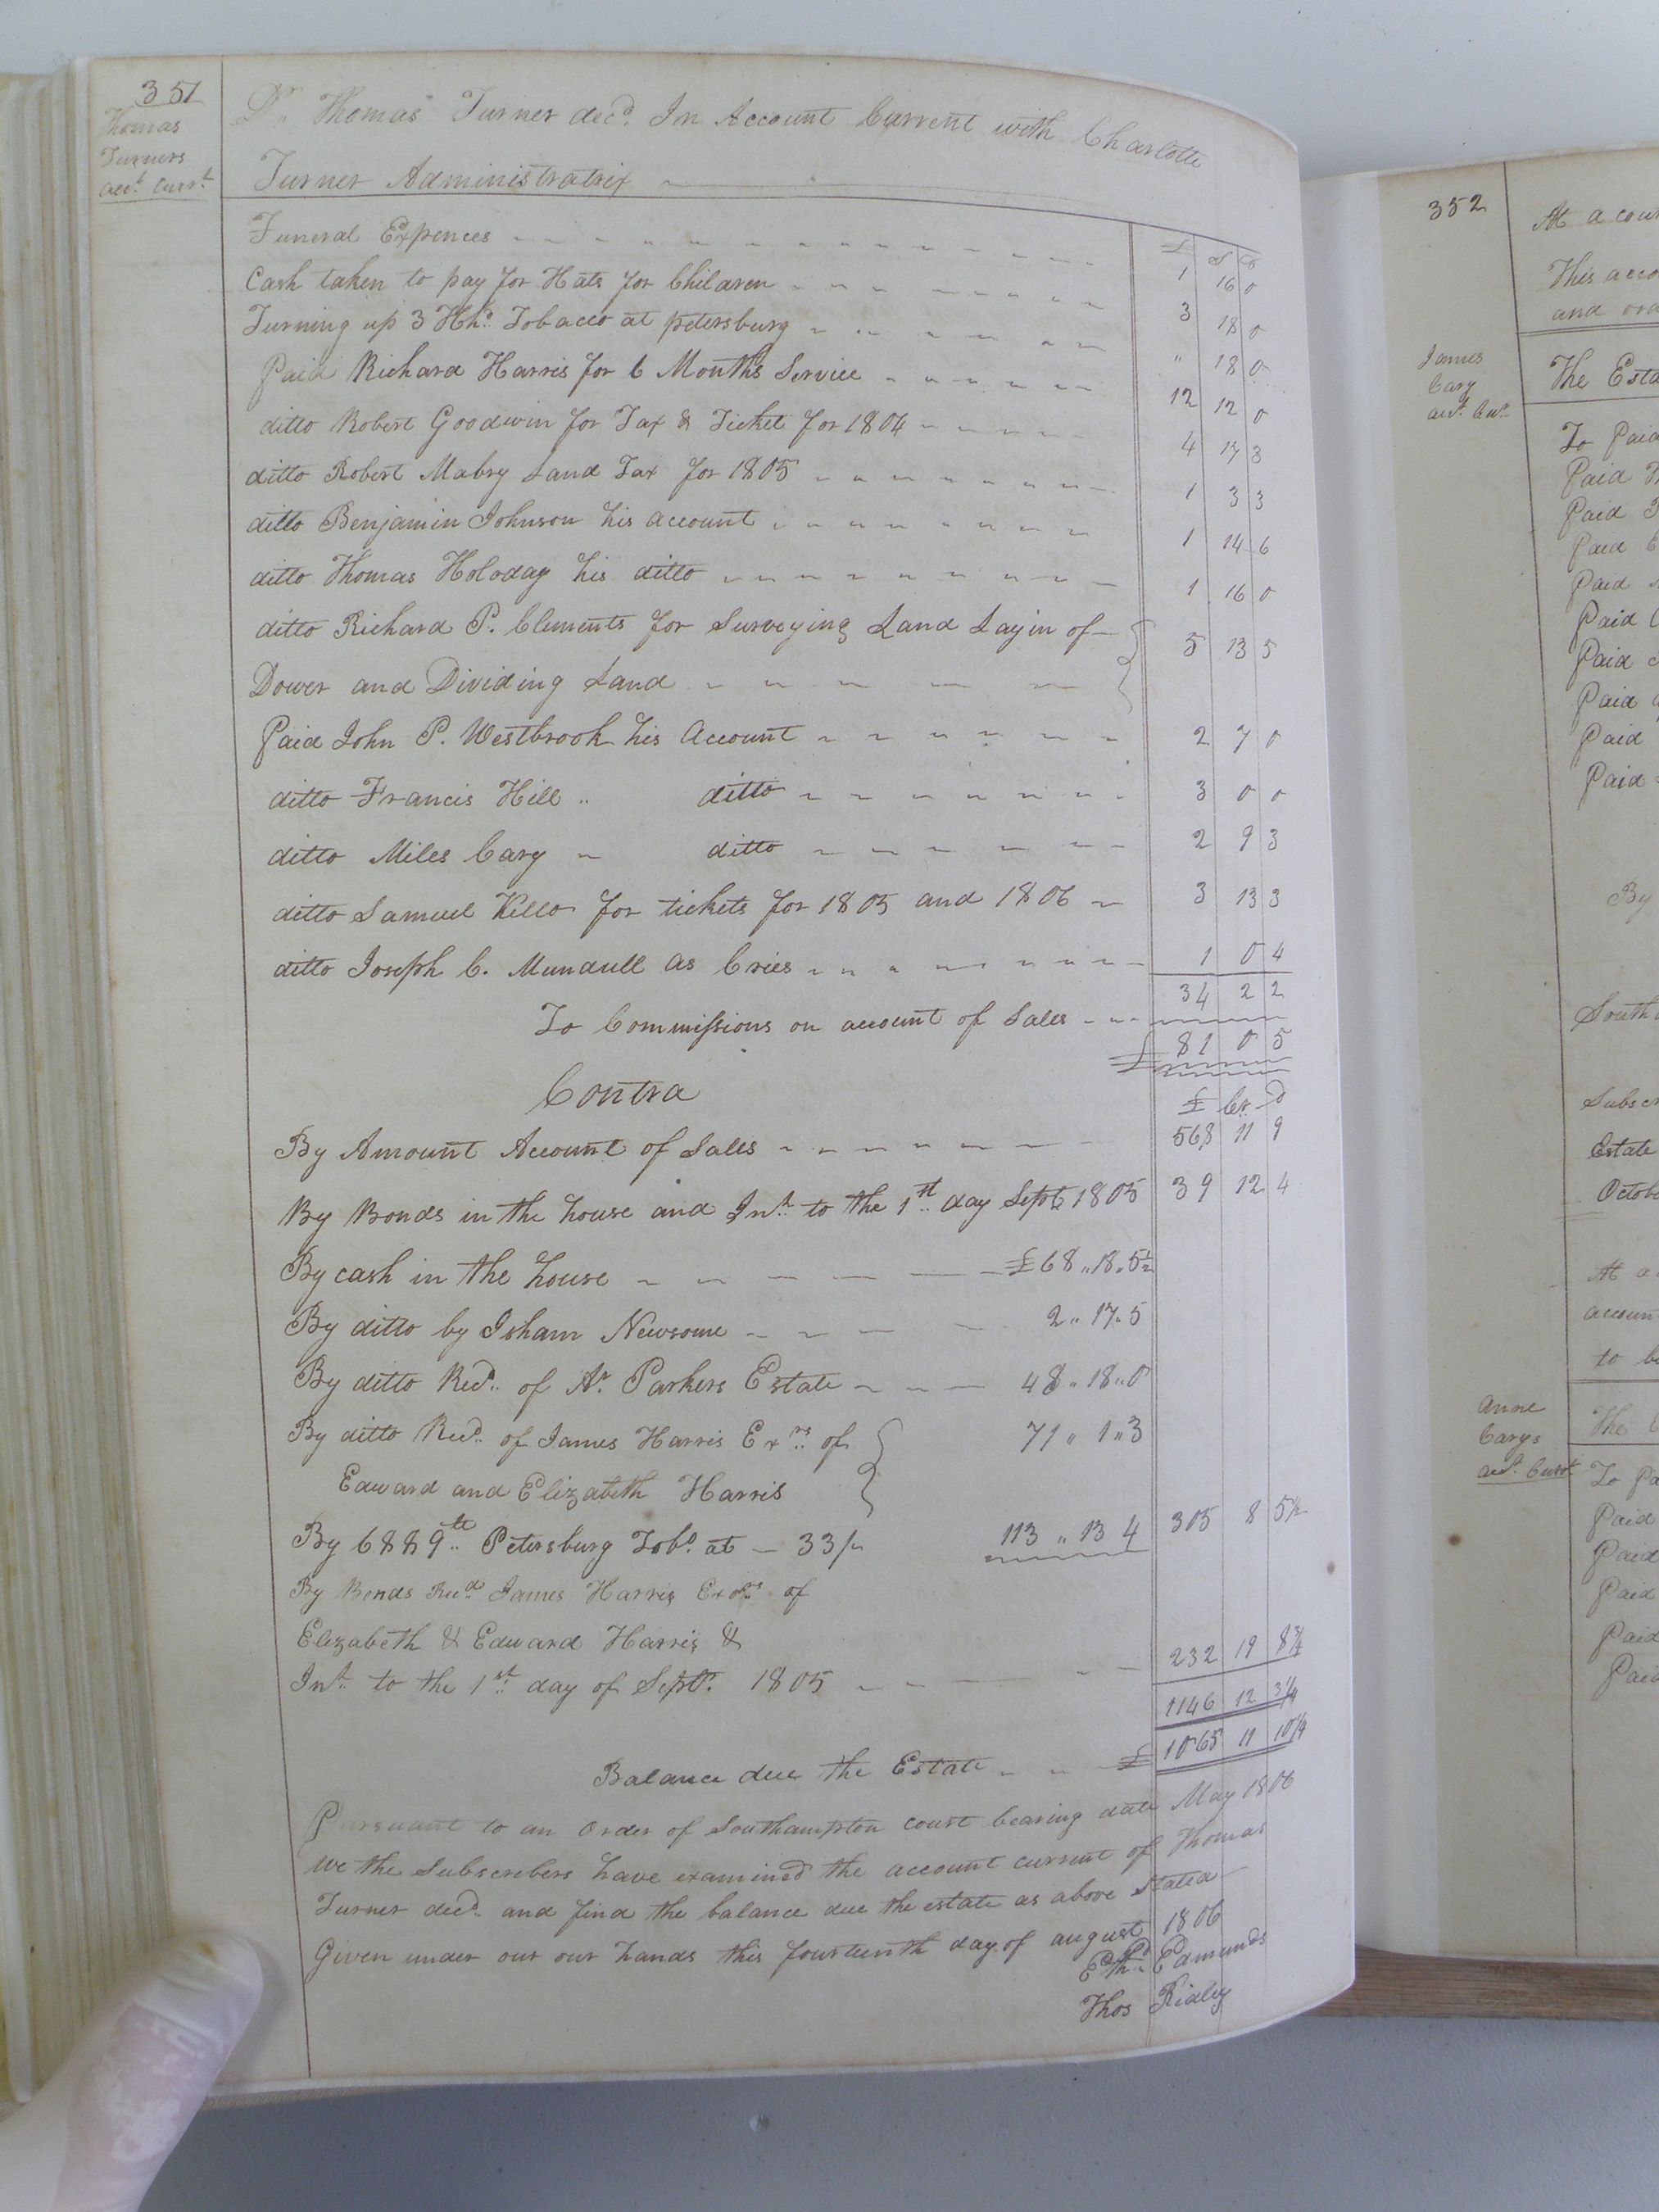 351
Thomas
Turners
acct. Curr.t
Dr. Thomas Turner decd. In Account Current with Charlotte
Turner Administratrix
£ S D
Funeral Expences 1 16 0
Cash taken to pay for Hats for Children 3 18 0
Turning up 3 Hhd. Tobacco at petersburg " 18 0
Paid Richard Harris for 6 Months Service 12 12 0
ditto Robert Goodwin for Tax & Ticket for 1804 4 17 3
ditto Robert Mabry Land Tax for 1805 1 3 3
ditto Benjamin Johnson his account 1 14 6
ditto Thomas Holoday his ditto 1 16 0
ditto Richard P. Clements for Surveying Land Layin of
Dower and Dividing Land 5 13 5
Paid John P. Westbrook his Account 2 7 0
ditto Francis Hill " ditto 3 0 0
ditto Miles Cary ditto 2 9 3
ditto Samuel Kello for tickets for 1805 and 1806 3 13 3
ditto Joseph C. Mundull as Cries 1 0 4
To Commissions on account of Sales 34 2 2
£ 81 0 5
Contra £ Cr. D
By Amount Account of Sales 568 11 9
By Bonds in the house and Int. to the 1st day Sept 1805 39 12 4
By cash in the house £68 " 18 " 5½
By ditto by Isham Newsome 2 " 17 " 5
By ditto Recd. of Ar. Parkers Estate 48 " 18 " 0
By ditto Recd. of James Harris Exrs. of 71 " 1 " 3
Edward and Elizabeth Harris
By 6889 lb Petersburg Tobo. at 33/ 113 " 13 4 305 8 5½
By Bonds Recd James Harris Exors. of
Elizabeth & Edward Harris &
Int. to the 1st day of Sept. 1805 232 19 8¾
1146 12 3¼
Balance due the Estate £ 1065 11 10¼
Pursuant to an Order of Southampton court bearing date May 1806
We the Subscribers have examined the account current of Thomas
Turner decd. and find the balance due the estate as above Stated
Given under our our hands this fourteenth day of august 1806
Edmunds
Thos Ridley
352
At a cour
This acco
and ord
James
Cary
act. Curr.
The Esta
To Paid
Paid
Paid
Paid
Paid
Paid
Paid
Paid
Paid
Paid
By
South
Subscr
Estate
Octobe
At a
accoun
to be
Anne
Carys
act. Curr.t
The
To Pa
Paid
Paid
Paid
Paid
Paid